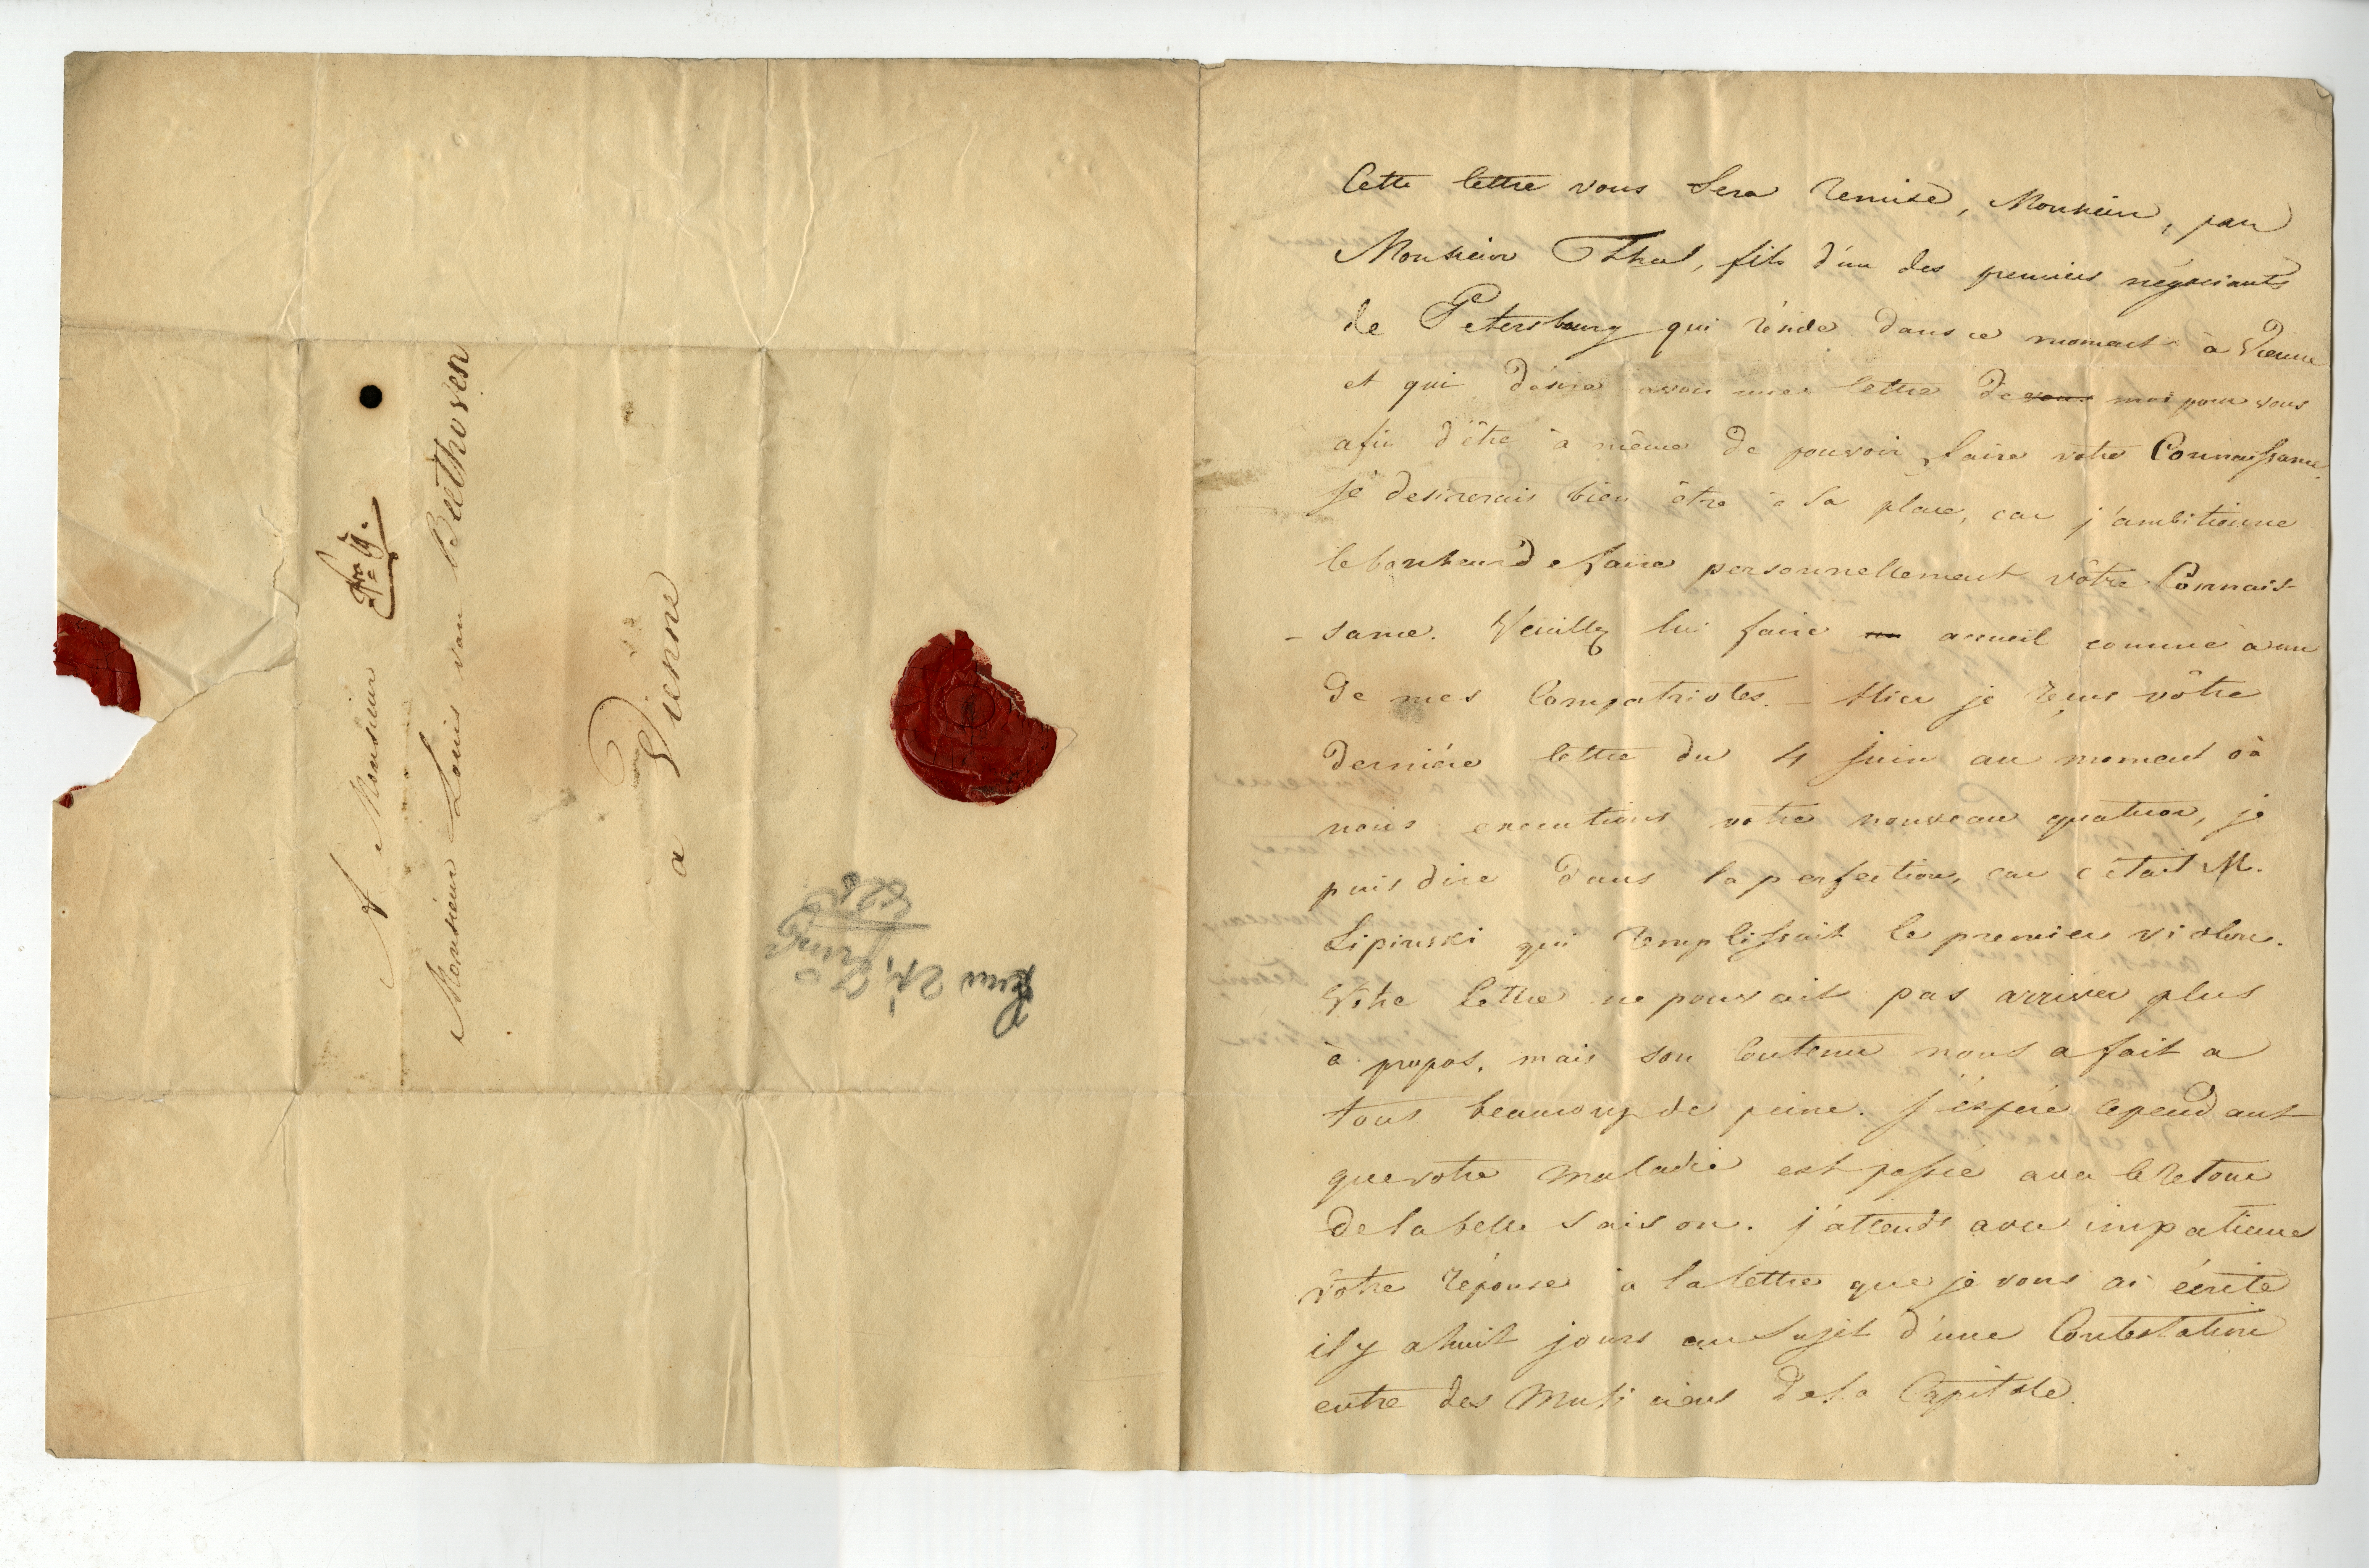 A Monsieur
Monsieur Louis van Beethoven
a Vienne
Juni 24,
Cette lettre vous sera remise, Monsieur, par
Monsieur Thal, fils d'un des premiers négociants
de Petersbourg qui réside dans ce moment à Vienne
et qui désire avoir une lettre de moi pour vous
afin d'être à même de pouvoir faire votre Connaissance.
je desirerais bien être à sa place, car j'ambitionne
le bonheur de faire personnellement vôtre Connais-
-sance. Veuillez lui faire accueil comme à un
de mes Compatriotes. – Hier je reçus vôtre
derniére lettre du 4 Juin au moment où
nous executions votre nouveau quatuor, je
puis dire dans la perfection, car c'était M.
Lipinski qui remplissait le premier violon.
Votre lettre ne pouvait pas arriver plus
à propos, mais son Contenu nous a fait a
tous beaucoup de peine. J'éspére cependant
que votre maladie est passée avec le retour
de la belle saison. j'attends avec impatience
vôtre réponse à la lettre que je vous ai écrite
il y a huit jours au sujet d'une Contestation
entre des Musiciens de la Capitale.